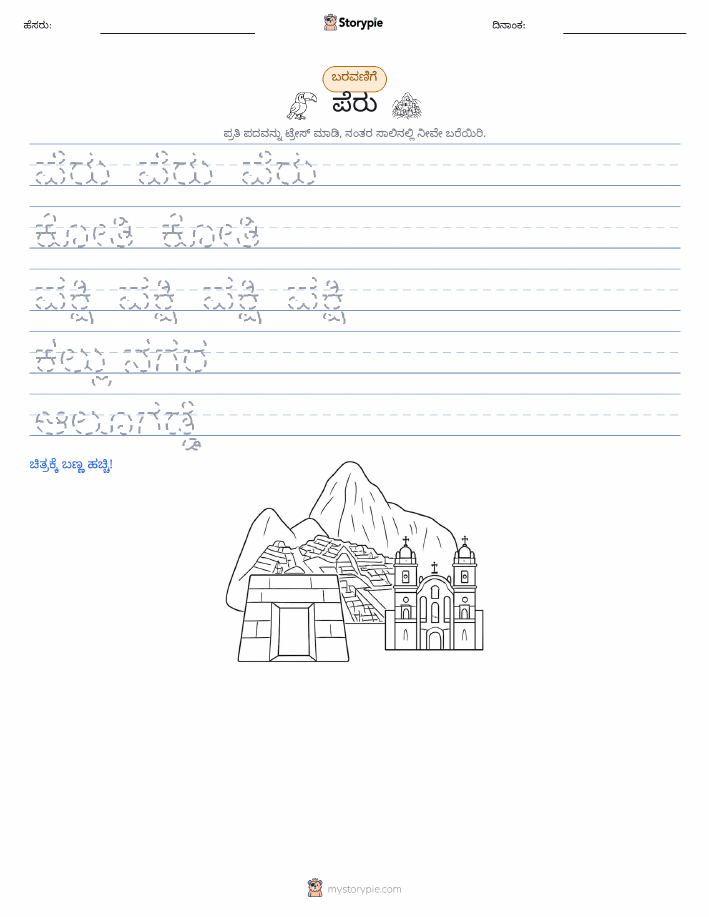 ಹೆಸರು:
Storypie
ದಿನಾಂಕ:
ಬರವಣಿಗೆ
ಪೆರು
ಪ್ರತಿ ಪದವನ್ನು ಟ್ರೇಸ್ ಮಾಡಿ, ನಂತರ ಸಾಲಿನಲ್ಲಿ ನೀವೇ ಬರೆಯಿರಿ.
ಪೆರು ಪೆರು ಪೆರು
ಕೋತಿ ಕೋತಿ
ಪಕ್ಷಿ ಪಕ್ಷಿ ಪಕ್ಷಿ ಪಕ್ಷಿ
ಕಲ್ಲು ನಗರ
ಆಲೂಗಡ್ಡೆ
ಚಿತ್ರಕ್ಕೆ ಬಣ್ಣ ಹಚ್ಚಿ!
mystorypie.com